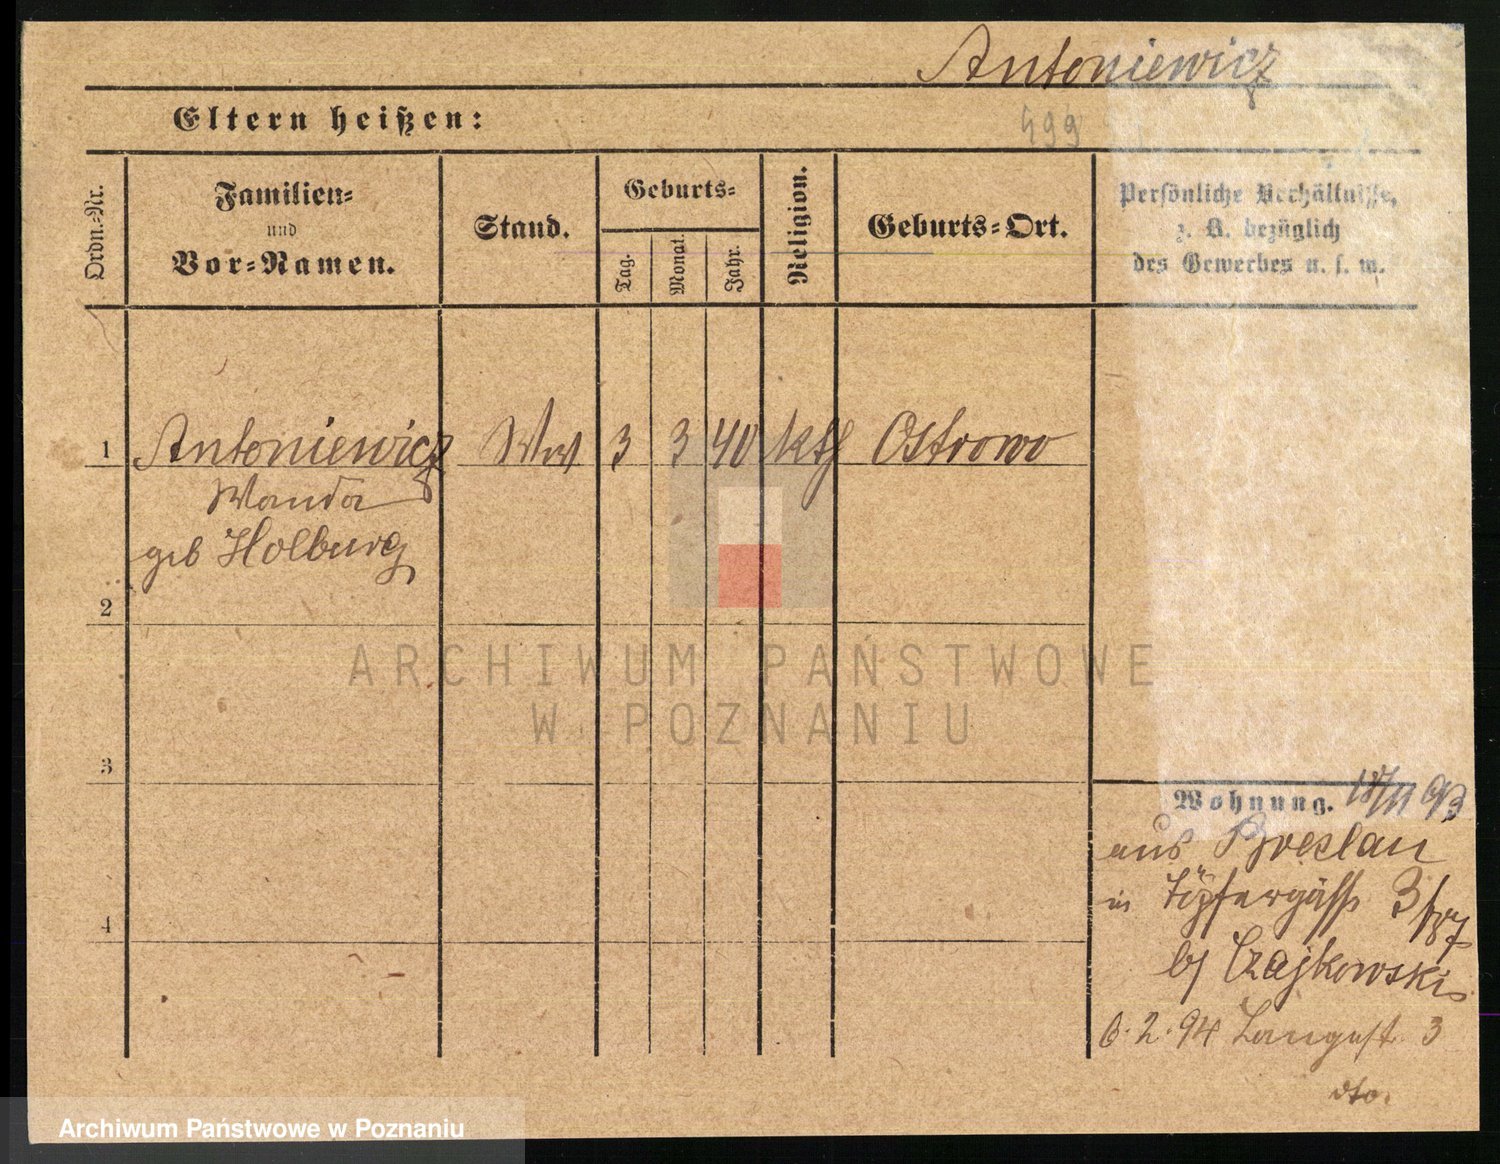 Antoniewicz
Eltern heißen:
499
Ordn.-Nr.
Familien-
und
Vor-Namen.
Stand.
Geburts-
Tag.
Monat.
Jahr.
Religion.
Geburts-Ort.
Persönliche Verhältnisse,
z. B. bezüglich
des Gewerbes u. s. w.
1
Antoniewicz
Wwe
3
3
40
kth
Ostrowo
Wanda
geb Holburg
2
3
4
ARCHIWUM PAŃSTWOWE
W POZNANIU
Wohnung. 18/11 93
aus Breslau
in Töpfergasse 3
b/ Czajkowski
6.2.94 Langestr. 3
dto.
Archiwum Państwowe w Poznaniu